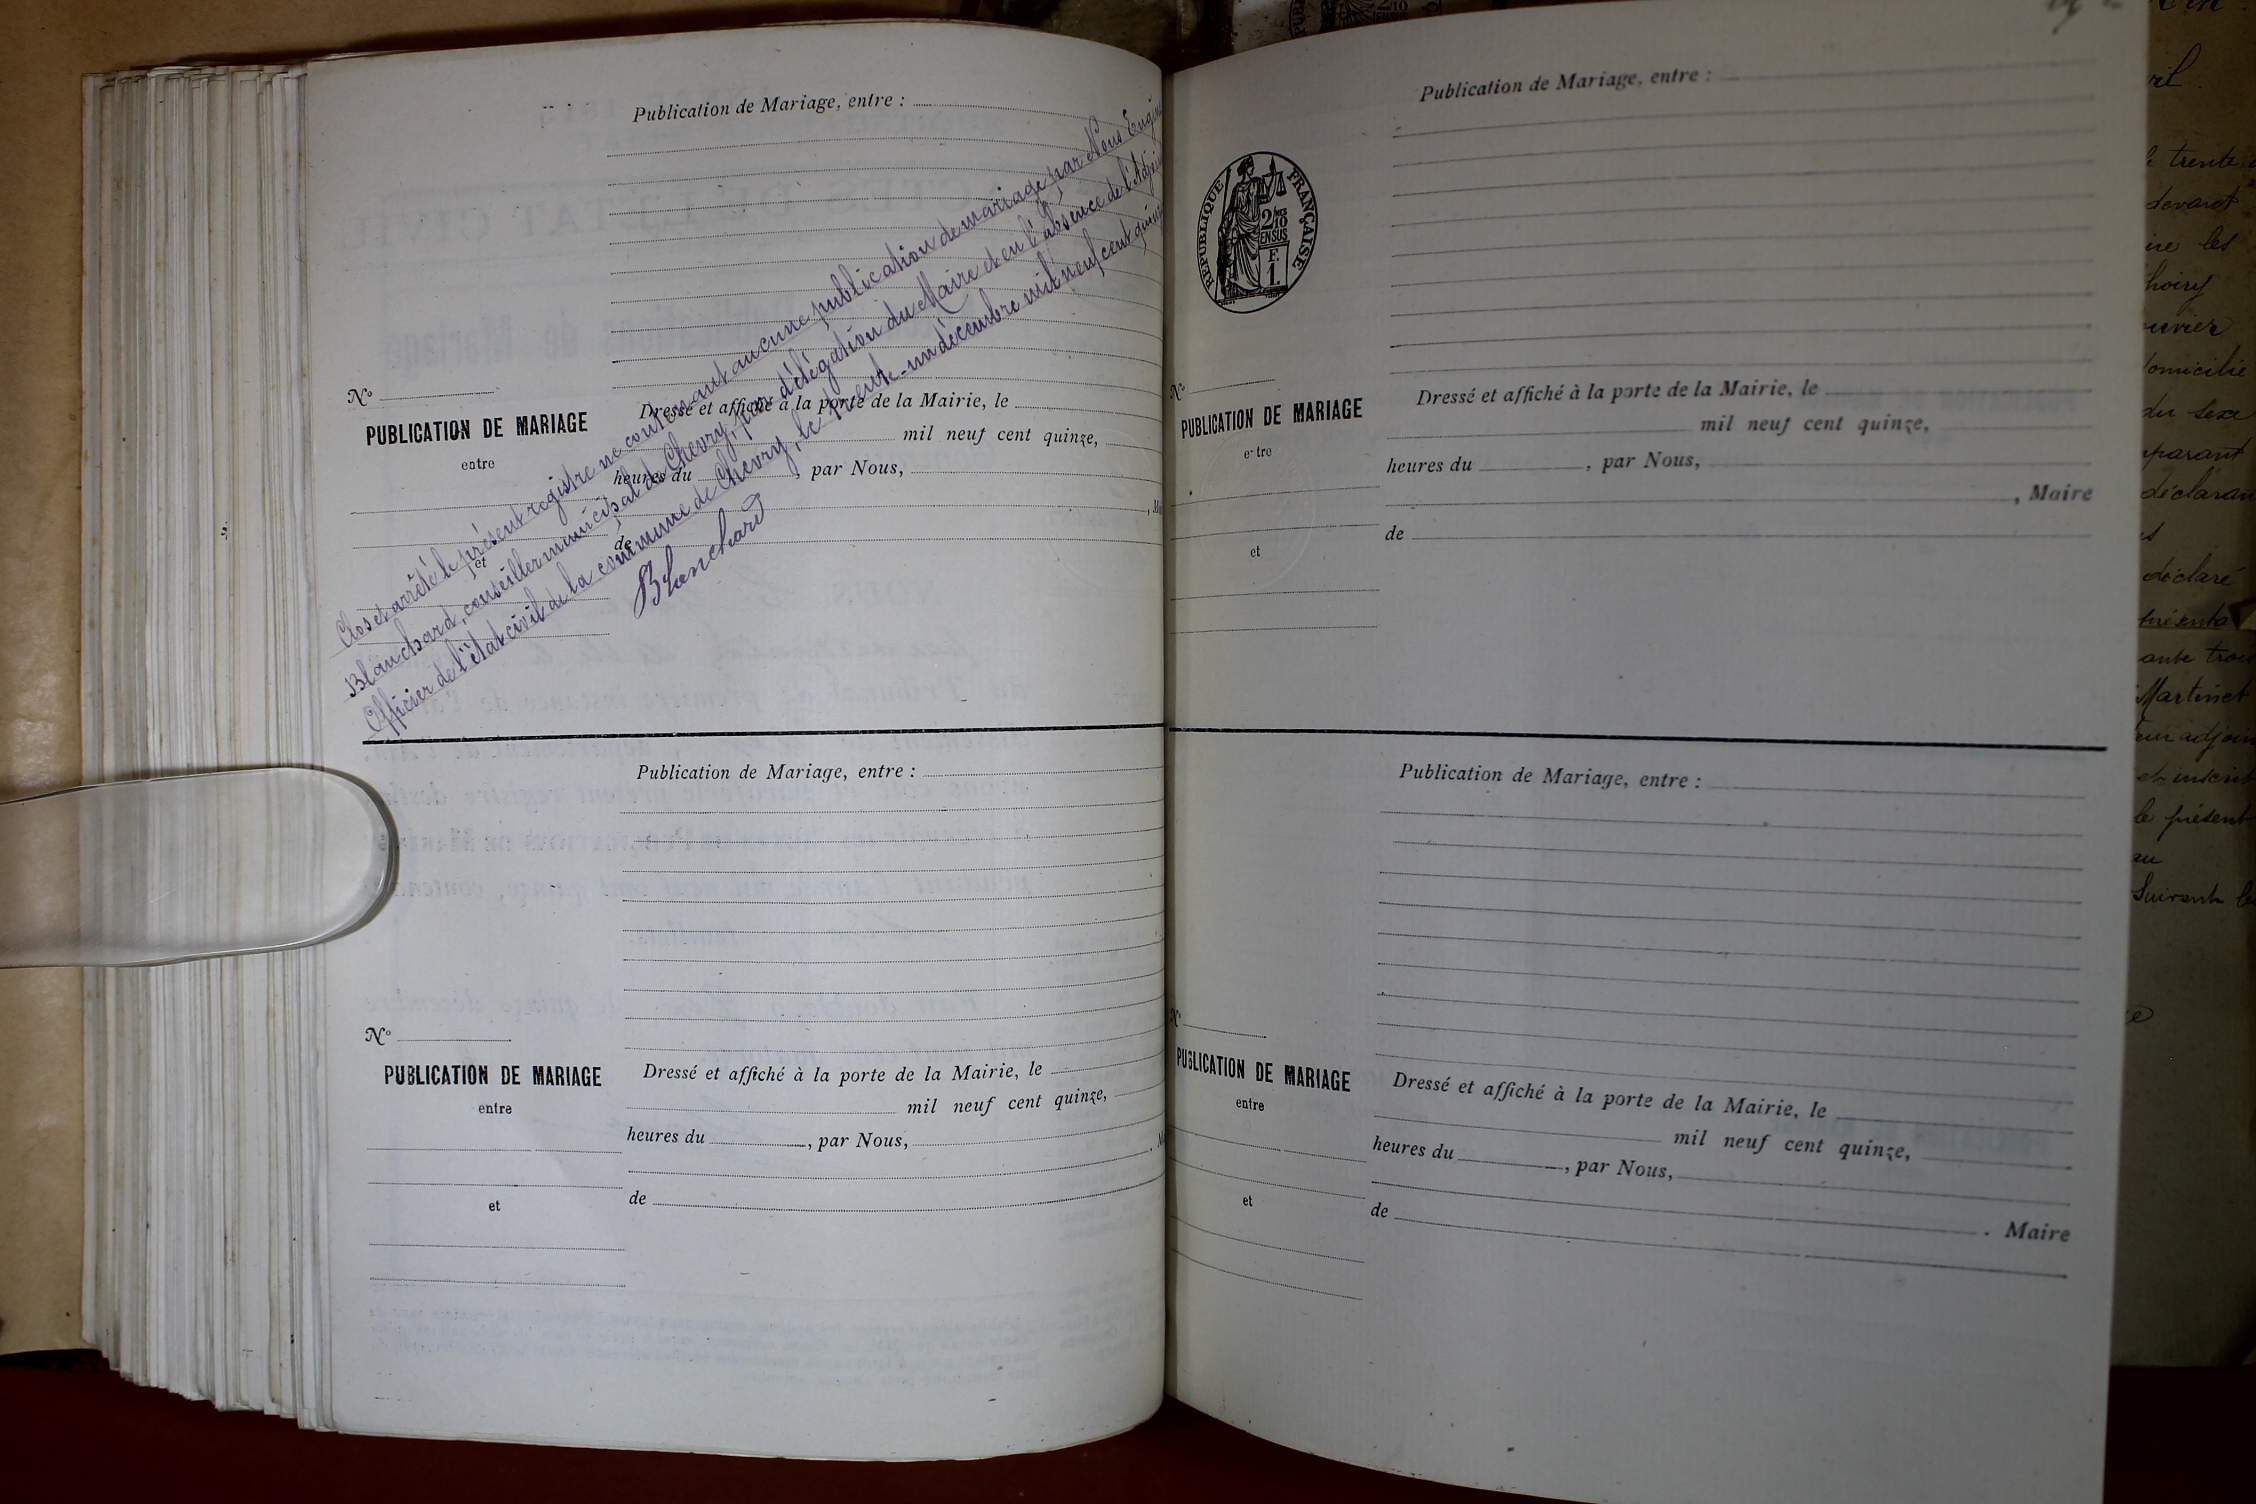 Publication de Mariage, entre :
Clos et arrêté le présent registre ne contenant aucune publication de mariage, par Nous Eugène
Blanchard, conseiller municipal de Chevry, par délégation du Maire et en l'absence de l'Adjoint
Officier de l'état civil de la commune de Chevry, le trente-un décembre mil neuf cent quinze
Blanchard
Nº
PUBLICATION DE MARIAGE
entre
et
Dressé et affiché à la porte de la Mairie, le
mil neuf cent quinze,
heures du , par Nous,
, Ma
de
Publication de Mariage, entre :
Nº
PUBLICATION DE MARIAGE
entre
et
Dressé et affiché à la porte de la Mairie, le
mil neuf cent quinze,
heures du , par Nous,
de
Publication de Mariage, entre :
RÉPUBLIQUE FRANÇAISE
2/10
EN SUS
F.
1.
Nº
PUBLICATION DE MARIAGE
e tre
et
Dressé et affiché à la porte de la Mairie, le
mil neuf cent quinze,
heures du , par Nous,
, Maire
de
Publication de Mariage, entre :
Nº
PUBLICATION DE MARIAGE
entre
et
Dressé et affiché à la porte de la Mairie, le
mil neuf cent quinze,
heures du , par Nous,
. Maire
de
trente
les
domicilié
du sexe
déclaré
Martinet
le présent
au
Suivant